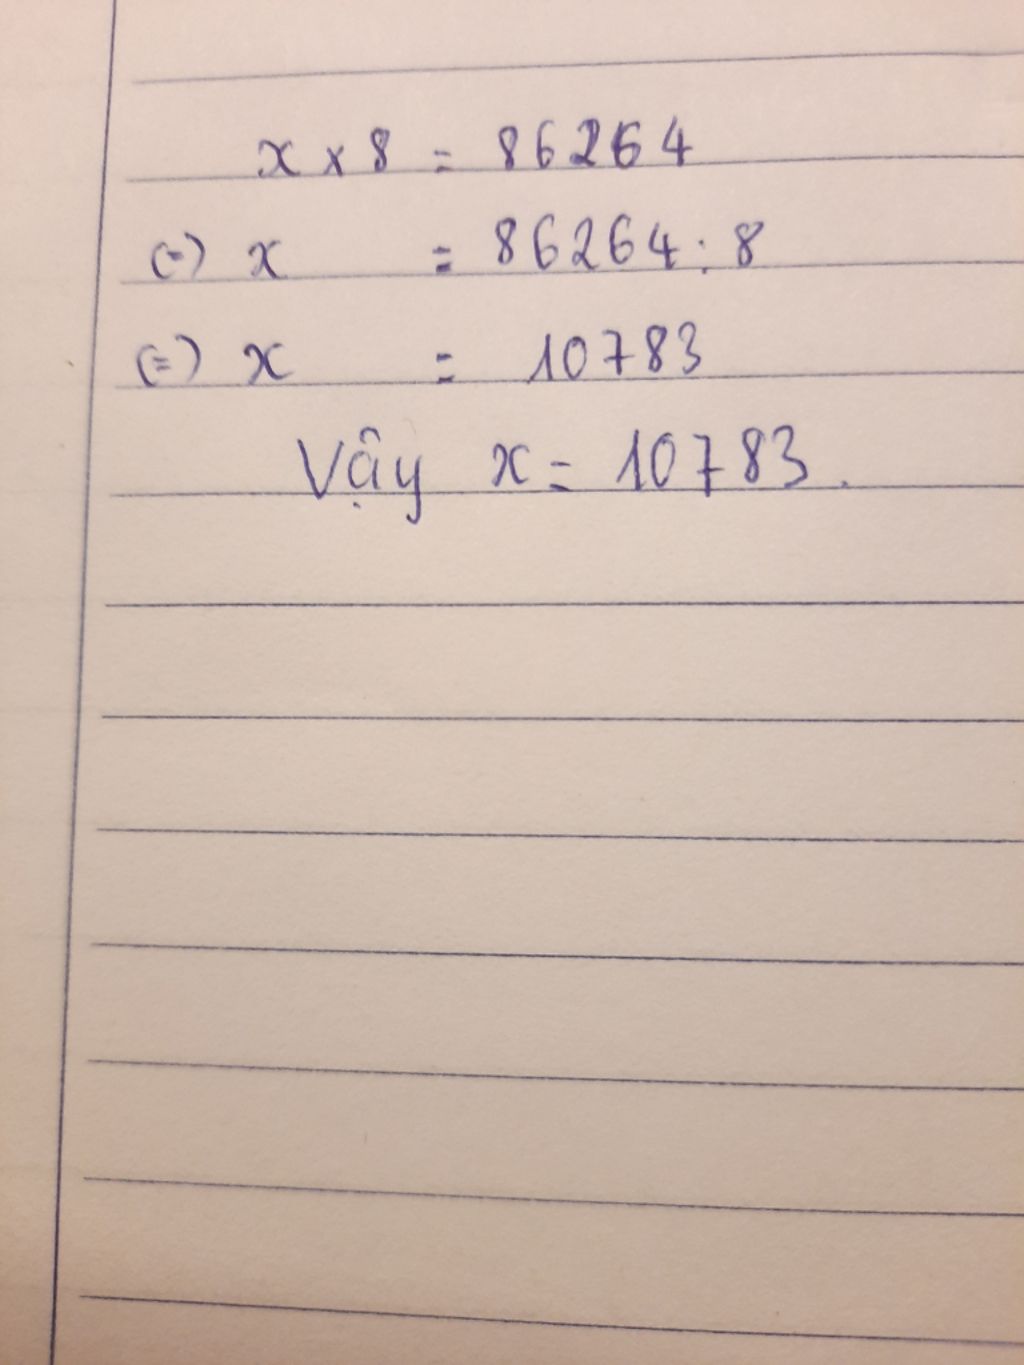 x × 8 = 86264
(=) x = 86264 : 8
(=) x = 10783
Vậy x = 10783.